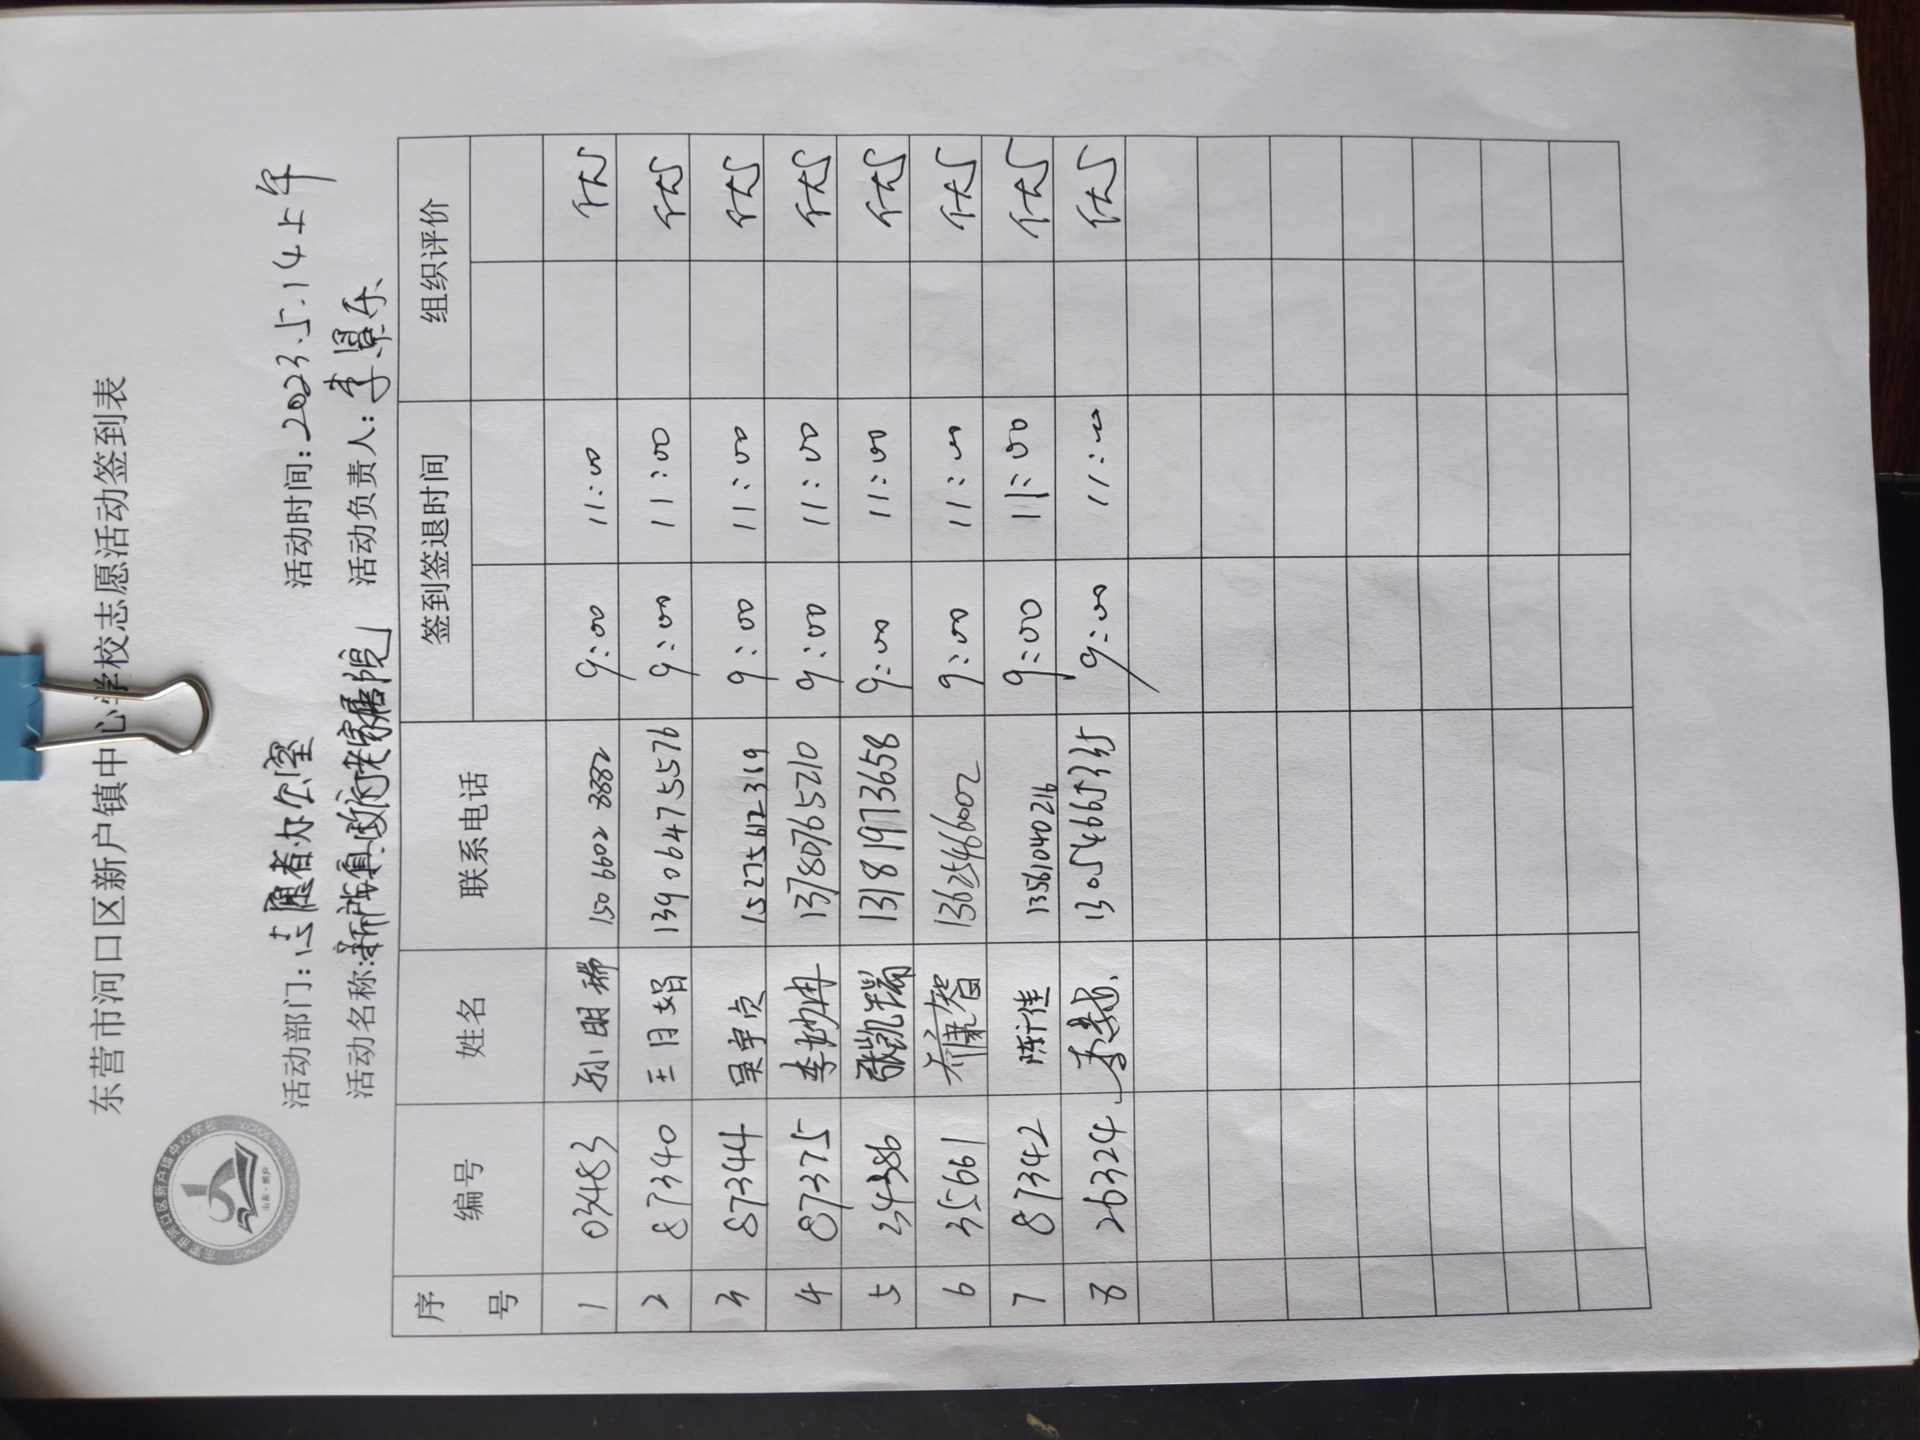 东营市河口区新户镇中心学校志愿活动签到表
活动部门：志愿者办公室 活动时间：2023.5.14上午
活动名称：新户镇政府老家属院 活动负责人：李景乐
序号 编号 姓名 联系电话 签到签退时间 组织评价
1 03483 孙明 150 6602 8882 9:00 11:00 优
2 87340 王月娟 139 0647 5576 9:00 11:00 优
3 87344 吴宇贞 15275612319 9:00 11:00 优
4 87375 李 冉 13780765210 9:00 11:00 优
5 24386 张凯瑞 13181973658 9:00 11:00 优
6 35661 智 13625466002 9:00 11:00 优
7 87342 陈佳 13561040216 9:00 11:00 优
8 26324 13054665335 9:00 11:00 优
山东·新户